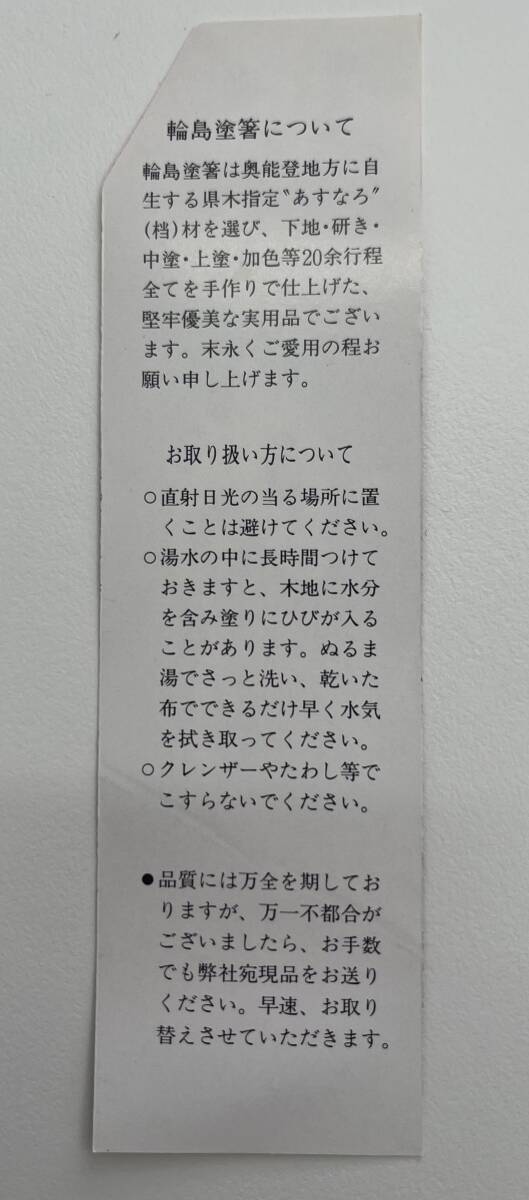 輪島塗箸について
輪島塗箸は奥能登地方に自
生する県木指定〝あすなろ〟
(档)材を選び、下地・研き・
中塗・上塗・加色等20余行程
全てを手作りで仕上げた、
堅牢優美な実用品でござい
ます。末永くご愛用の程お
願い申し上げます。
お取り扱い方について
○直射日光の当る場所に置
くことは避けてください。
○湯水の中に長時間つけて
おきますと、木地に水分
を含み塗りにひびが入る
ことがあります。ぬるま
湯でさっと洗い、乾いた
布でできるだけ早く水気
を拭き取ってください。
○クレンザーやたわし等で
こすらないでください。
●品質には万全を期してお
りますが、万一不都合が
ございましたら、お手数
でも弊社宛現品をお送り
ください。早速、お取り
替えさせていただきます。